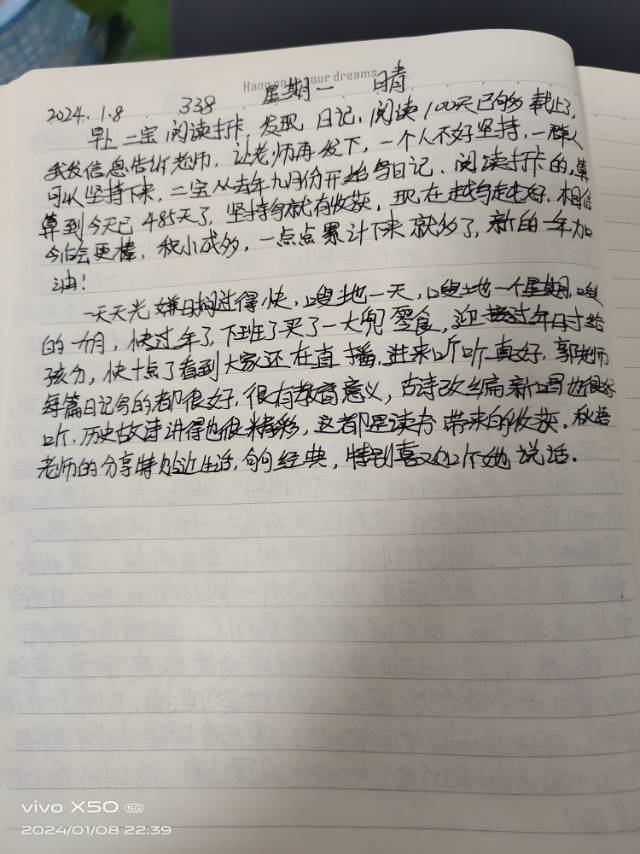 Hang on your dreams
2024.1.8 338 星期一 晴
早上二宝阅读打卡,发现日记,阅读100天已够截止了,
我发信息告诉老师,让老师再发下,一个人不好坚持,一群人
可以坚持下来,二宝从去年九月份开始写日记,阅读打卡的,算
算到今天已485天了,坚持写就有收获,现在越写越好,相信
今后会更棒,积小成多,一点点累计下来就多了,新的一年加
油!
一天天光嫌时间过得快,嗖地一天,嗖地一个星期,嗖
的一月,快过年了,下班了买了一大兜零食,迎接过年时给
孩分,快十点了看到大家还在直播,进来听听真好,郭老师
每篇日记写的都很好,很有教育意义,古诗改编新唱也很好
听,历史故事讲得也很精彩,这都是读书带来的收获.
老师的分享特贴近生活,句句经典,特别喜欢听她说话.
vivo X50 5G
2024/01/08 22:39